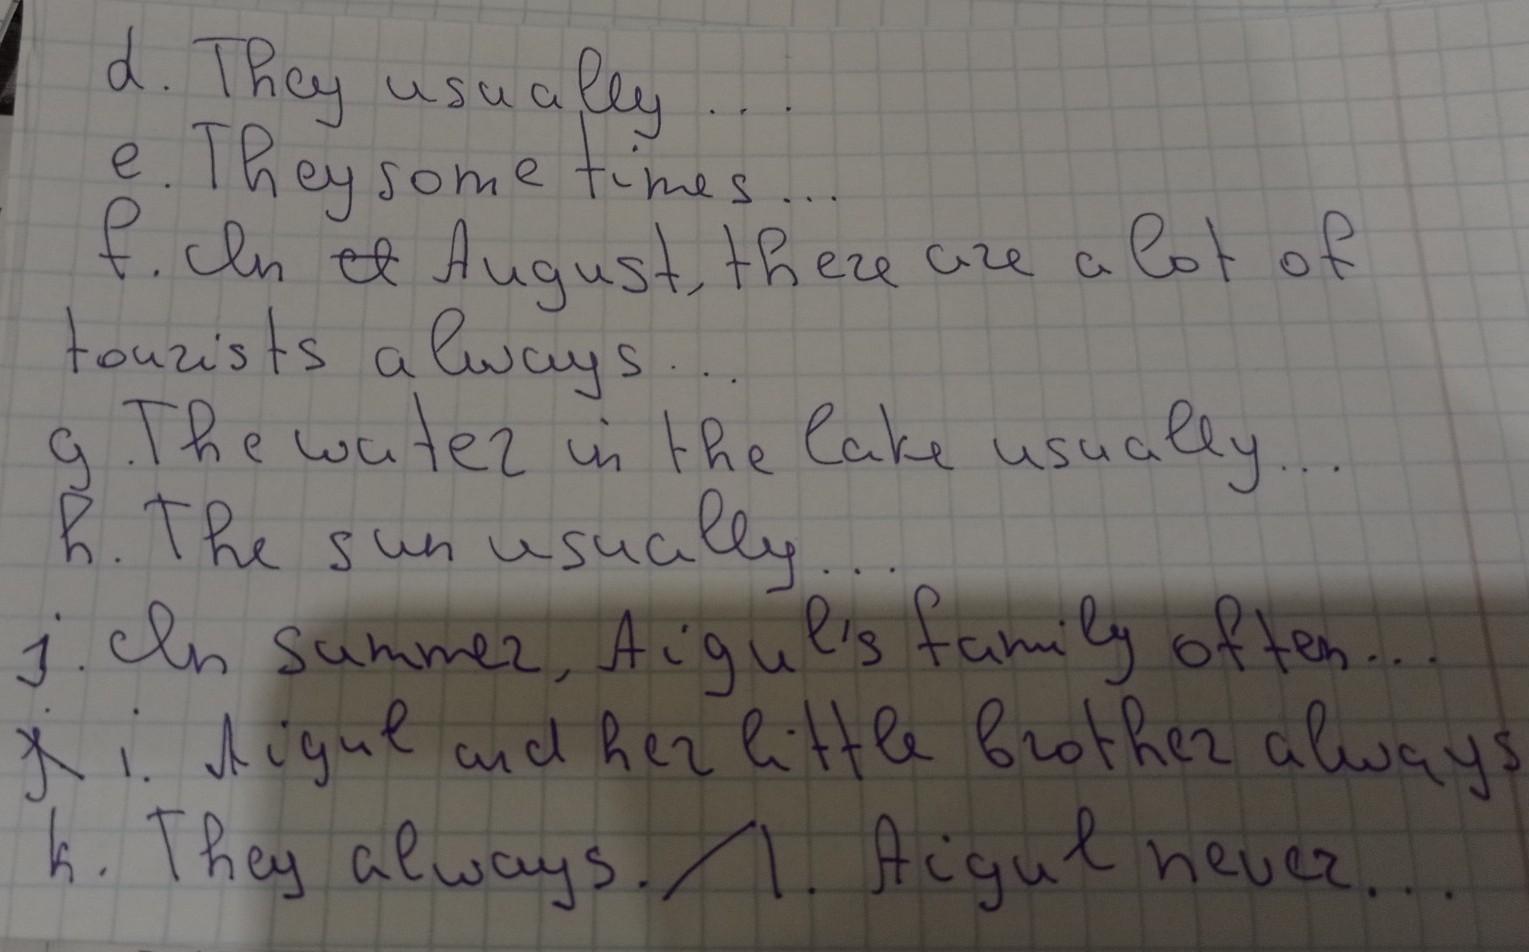 d. They usually...
e. They sometimes...
f. In August, there are a lot of
tourists always...
g. The water in the lake usually...
h. The sun usually...
j. In summer, Aigul's family often...
i. Aigul and her little brother always
k. They always. / l. Aigul never...